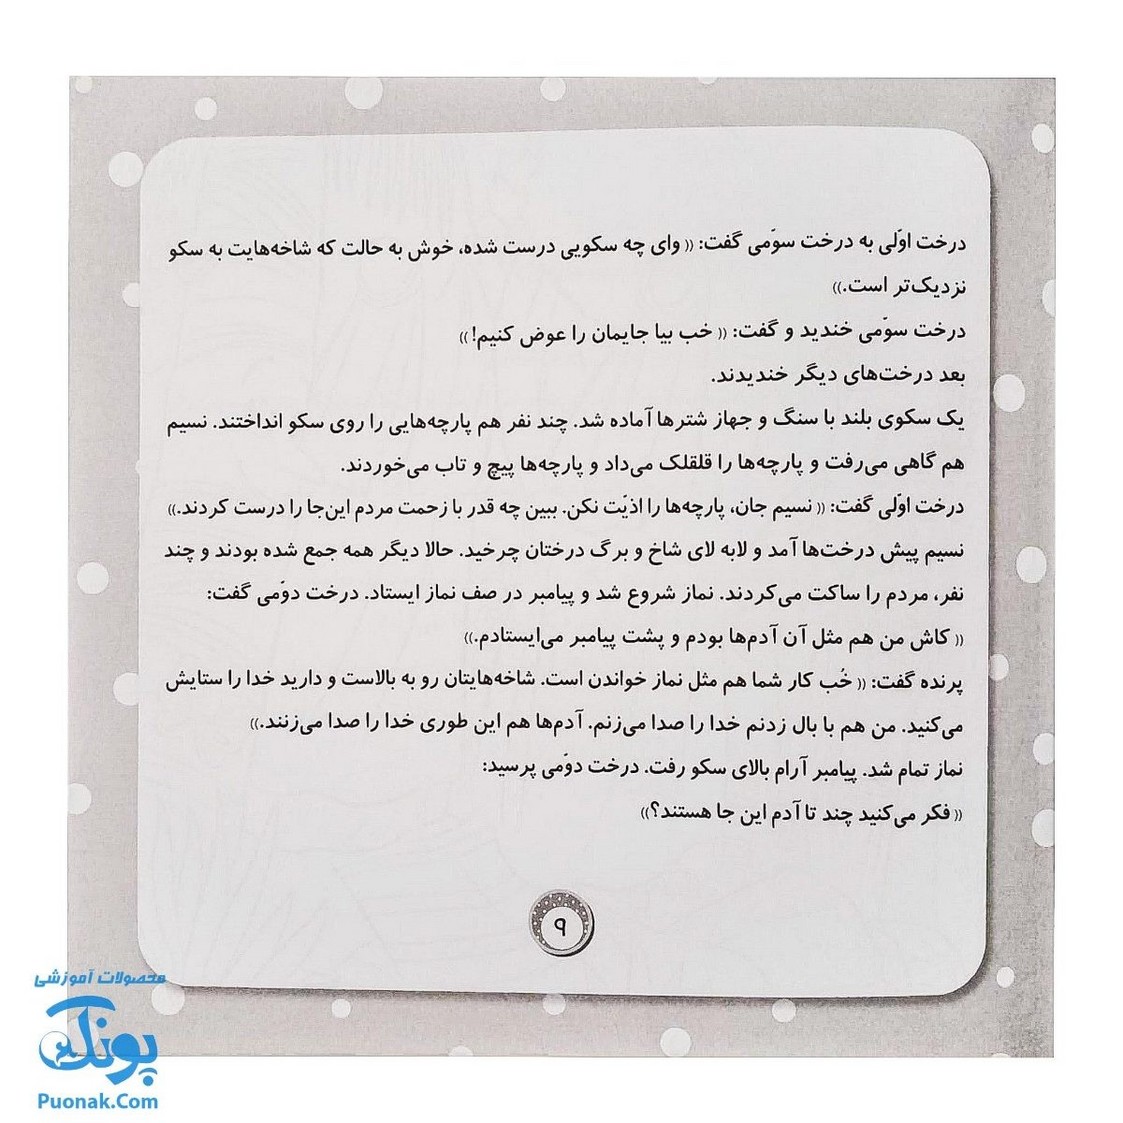 درخت اوّلی به درخت سوّمی گفت: (( وای چه سکویی درست شده، خوش به حالت که شاخه‌هایت به سکو
نزدیک‌تر است.))
درخت سوّمی خندید و گفت: (( خب بیا جایمان را عوض کنیم! ))
بعد درخت‌های دیگر خندیدند.
یک سکوی بلند با سنگ و جهاز شترها آماده شد. چند نفر هم پارچه‌هایی را روی سکو انداختند. نسیم
هم گاهی می‌رفت و پارچه‌ها را قلقلک می‌داد و پارچه‌ها پیچ و تاب می‌خوردند.
درخت اوّلی گفت: (( نسیم جان، پارچه‌ها را اذیّت نکن. ببین چه قدر با زحمت مردم این‌جا را درست کردند.))
نسیم پیش درخت‌ها آمد و لابه لای شاخ و برگ درختان چرخید. حالا دیگر همه جمع شده بودند و چند
نفر، مردم را ساکت می‌کردند. نماز شروع شد و پیامبر در صف نماز ایستاد. درخت دوّمی گفت:
(( کاش من هم مثل آن آدم‌ها بودم و پشت پیامبر می‌ایستادم.))
پرنده گفت: (( خُب کار شما هم مثل نماز خواندن است. شاخه‌هایتان رو به بالاست و دارید خدا را ستایش
می‌کنید. من هم با بال زدنم خدا را صدا می‌زنم. آدم‌ها هم این طوری خدا را صدا می‌زنند.))
نماز تمام شد. پیامبر آرام بالای سکو رفت. درخت دوّمی پرسید:
(( فکر می‌کنید چند تا آدم این جا هستند؟))
۹
محصولات آموزشی
پونک
Puonak.Com